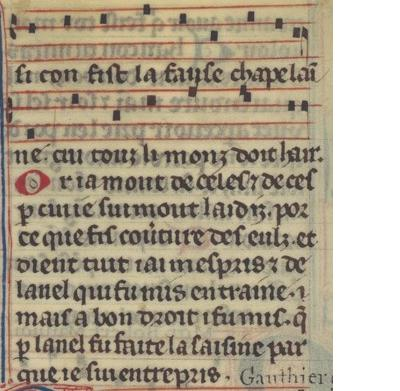 si con fist la fause chapelaĩ
ne. cui touz li monz doit hair.
Or ia mout de celes ⁊ de ces
ꝑ cui ie sui mout laidiz. por
ce que fis couture des eulz. et
dient tuit iai mespris ⁊ de
lanel qui fu mis en traine. i
mais a bon droit i fu mis. q̃
ꝑ lanel fu faite la saisine par
que ie sui entrepris. Gauthier